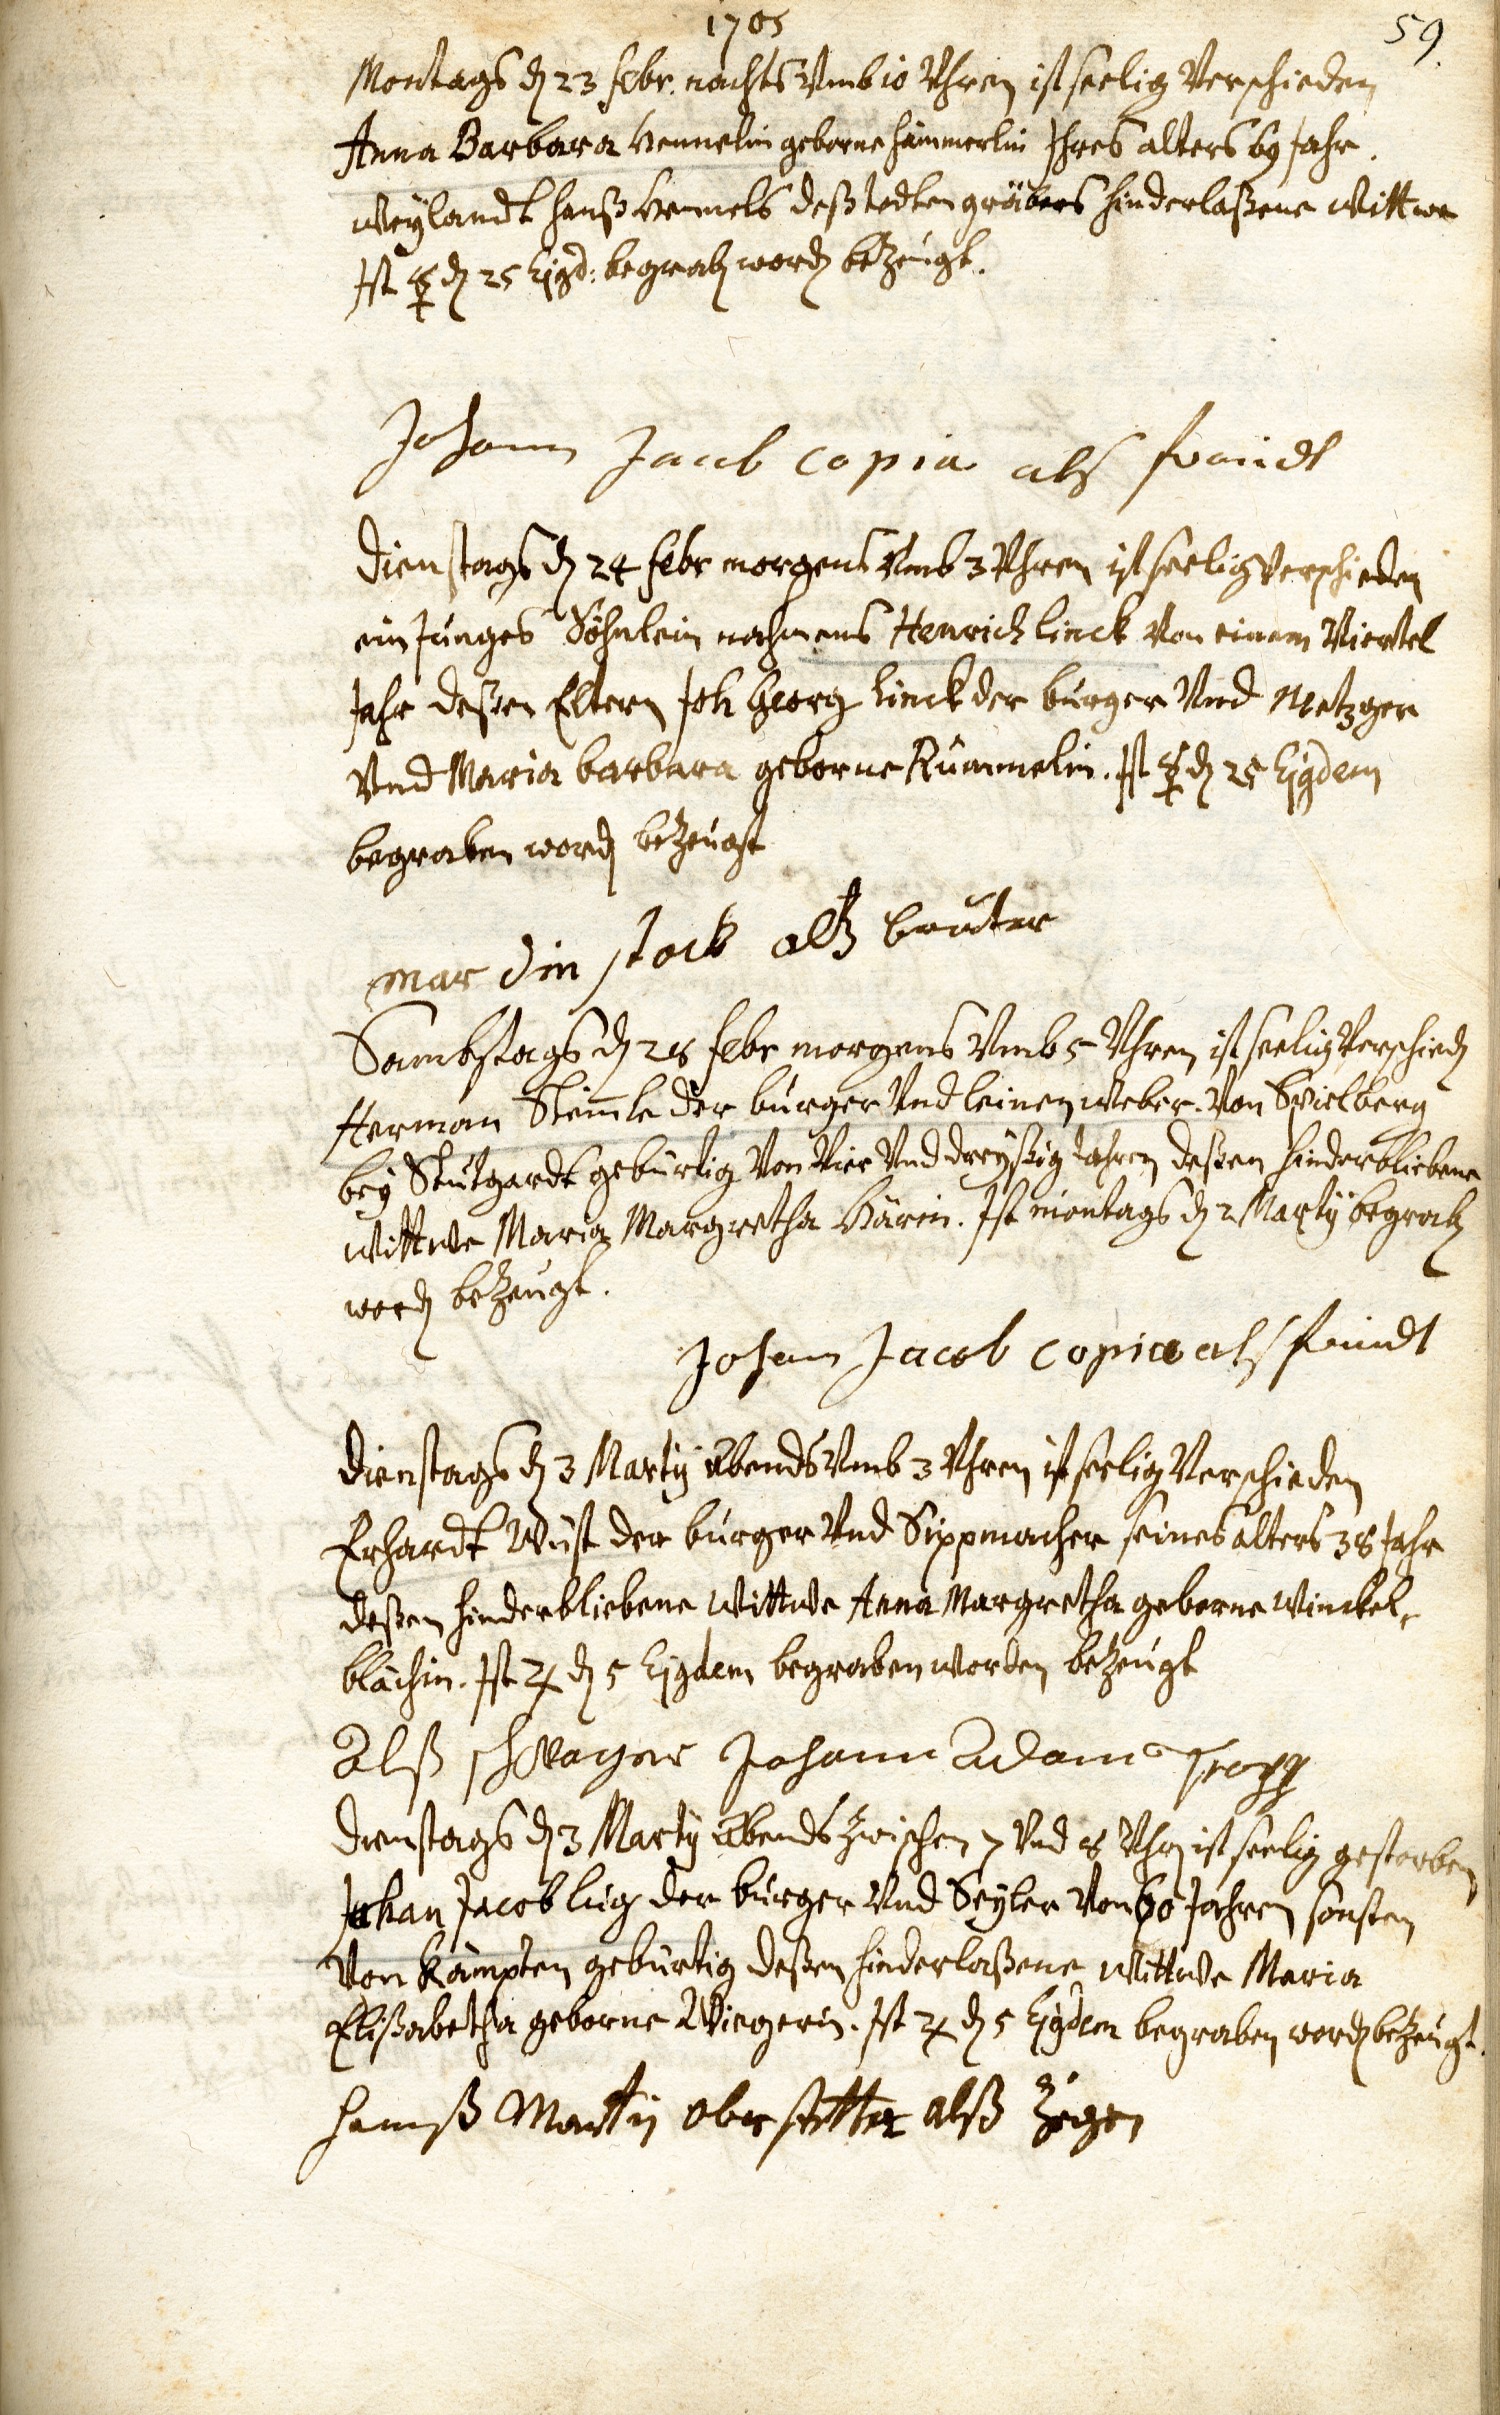 1705
59.
Montags d. 23 febr. nachts Vmb 10 Vhren ist seelig Verschieden
Anna Barbara Hennelin geborne Hämmerlin Ihres alters 69 Jahr.
Weylandt Hanß Hennels deß todtengräbers hinderlaßene Wittwe
Ist ☿ d. 25 Ejusd: begrab. word. bezeugt.
Johann Jacob Copia als freindt
Dienstags d. 24 febr morgens Vmb 3 Vhren ist seelig Verschieden
ein Junges Söhnlein nahmens Henrich Linck Von einem Viertel
Jahr deßen Eltern Joh Georg Linck der burger Vnd Metzger
Vnd Maria barbara geborne Kümmelin. Ist ☿ d. 25 Ejusdem
begraben word. bezeugt
mardin stock alß
Sambstags d. 28 febr morgens Vmb 5 Vhren ist seelig Verschied.
Herman Stemle der burger Vnd leinenweber. Von Spielberg
bey Stutgardt gebürtig Von Vier Vnd dreyßig Jahren deßen hinderbliebene
Wittwe Maria Margretha Bärin. Ist montags d. 2 Martij begrab.
word. bezeugt.
Johann Jacob Copia als freindt
Dienstags d. 3 Martij abends Vmb 3 Vhren ist seelig Verschieden
Erhardt Wüst der burger Vnd Sippmacher seines alters 38 Jahr
deßen hinderbliebene Wittwe Anna Margretha geborne Winckel-
blächin. Ist ♃ d. 5 Ejusdem begraben worden bezeugt
Alß schwager Johann Adam
Dienstags d. 3 Martij abends zwischen 7 Vnd 8 Vhr ist seelig gestorben
Johan Jacob Lug der burger Vnd Seyler Von 60 Jahren sonsten
Von Kämpten gebürtig deßen hinderlaßene Wittwe Maria
Elißabetha geborne Wiegerin. Ist ♃ d. 5 Ejusdem begraben word. bezeugt.
Hannß Martin oberstetter alß Zeigen